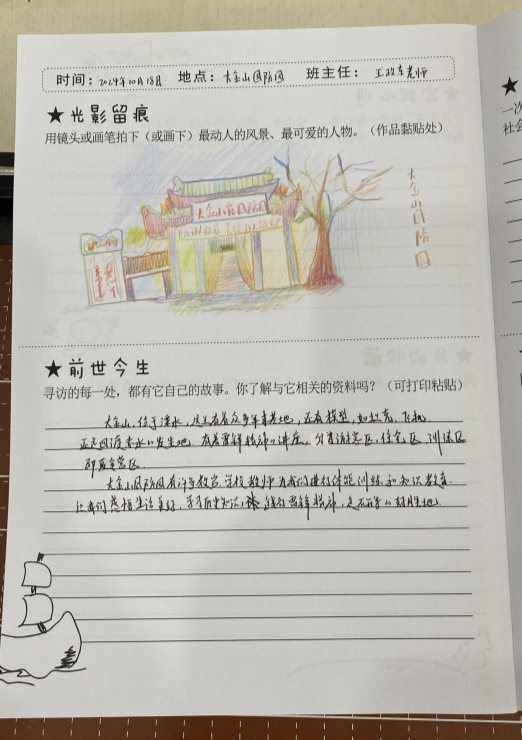 时间：2024年10月18日 地点：大金山国防园 班主任：王政老师
★光影留痕
用镜头或画笔拍下（或画下）最动人的风景、最可爱的人物。（作品黏贴处）
大金山国防园
大金山国防园
★前世今生
寻访的每一处，都有它自己的故事。你了解与它相关的资料吗？（可打印粘贴）
大金山，位于溧水，这里有着众多年青基地，还有模型，如坦克、飞机
正是四渡赤水的发生地，有着雷锋精神的讲座，分为游玩区、住宿区、训练区
即军营区
大金山国防园有许多教官，学校教师为我们进行体能训练和知识教育
让我们感悟生活美好，学习历史知识，践行雷锋精神，是
一次
社会
★